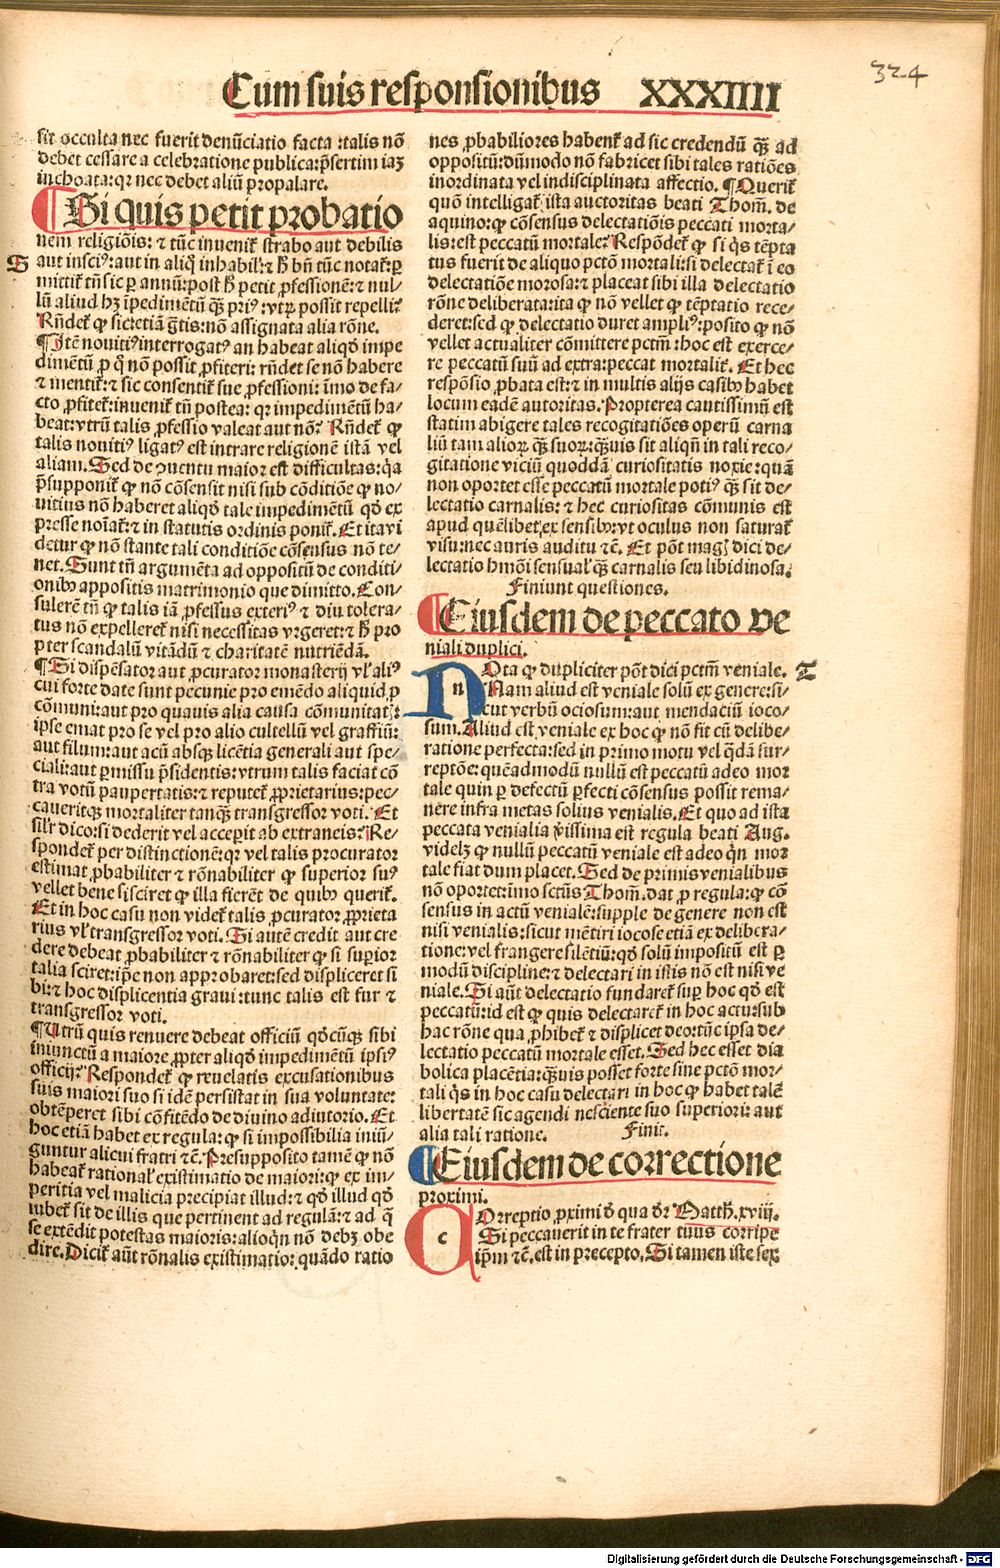 324
Cum suis responsionibus XXXIIII
sit occulta nec fuerit denũciatio facta: talis nõ
debet cessare a celebratione publica: p̃sertim iaʒ
inchoata: qꝛ nec debet aliũ propalare.
¶ Si quis petit probatio
nem religiõis: ⁊ tũc inueniť strabo aut debilis
S
aut insciꝰ: aut in aliq̊ inhabil: ⁊ ħ bñ tũc notať: ꝑ
mittiť tñ sic ꝑ annũ: post ħ petit ꝓfessionẽ: ⁊ nul/
lũ aliud hʒ ĩpedimẽtũ qꝫ̃ pꝛiꝰ: vtꝝ possit repelli?
Rñdeť ꝙ sic: etiã gͣtis: nõ assignata alia rõne.
¶ Itẽ nouitiꝰ interrogatꝰ an habeat aliqd̕ impe
dimẽtũ ꝓ q̊ nõ possit ꝓfiteri: rñdet se nõ habere
⁊ mentiť: ⁊ sic consentiť sue ꝓfessioni: ĩmo de fa/
cto ꝓfiteť: inueniť tñ postea: qꝛ impedimẽtũ ha/
beat: vtrũ talis ꝓfessio valeat aut nõ? Rñdeť ꝙ
talis nouitiꝰ ligatꝰ est intrare religionẽ istã vel
aliam. Sed de ꝯuentu maior est difficultas: q̃a
p̃supponiť ꝙ nõ cõsensit nisi sub cõditiõe ꝙ no/
uitius nõ haberet aliqd̕ tale impedimẽtũ qd̕ ex
presse noĩať: ⁊ in statutis ordinis poniť. Et ita vi
detur ꝙ nõ stante tali conditiõe cõsensus nõ te/
net. Sunt tñ argumẽta ad oppositũ de conditi/
onibꝰ appositis matrimonio que dimitto. Con/
sulerẽ tñ ꝙ talis iã ꝓfessus exteriꝰ ⁊ diu tolera/
tus nõ expellereť nisi necessitas vrgeret: ⁊ ħ pro
pter scandalũ vitãdũ ⁊ charitatẽ nutriẽdã.
¶ Si dispẽsator aut ꝓcurator monasterij vľ aliꝰ
cui forte date sunt pecunie pro emẽdo aliquid ꝓ
cõmuni: aut pro quauis alia causa cõmunitať:
ipse emat pro se vel pro alio cultellũ vel graffiũ:
aut filum: aut acũ absqꝫ licẽtia generali aut spe/
ciali: aut ꝑmissu p̃sidentis: vtrum talis faciat cõ
tra votũ paupertatis: ⁊ reputeť ꝓprietarius: pec/
caueritqꝫ mortaliter tanqꝫ̃ transgressor voti. Et
siľr dico: si dederit vel acceꝑit ab extraneis? Re/
spondeť per distinctionẽ: qꝛ vel talis procurator
estimat ꝓbabiliter ⁊ rõnabiliter ꝙ superior suꝰ
vellet bene si sciret ꝙ illa fierẽt de quibꝰ queriť.
Et in hoc casu non videť talis ꝓcurator ꝓprieta
rius vľ transgressor voti. Si autẽ credit aut cre
dere debeat ꝓbabiliter ⁊ rõnabiliter ꝙ si suꝑior
talia sciret: ip̃e non approbaret: sed displiceret si
bi: ⁊ hoc displicentia graui: tunc talis est fur ⁊
transgressor voti.
¶ Utrũ quis renuere debeat officiũ qd̕cũqꝫ sibi
iniunctũ a maiore ꝓpter aliqd̕ impedimẽtũ ipsiꝰ
officij? Respondeť ꝙ reuelatis excusationibus
suis maiori suo si idẽ persistat in sua voluntate:
obtẽperet sibi cõfitẽdo de diuino adiutorio. Et
hoc etiã habet ex regula: ꝙ si impossibilia iniũ/
guntur alicui fratri ⁊c̃. Presupposito tamẽ ꝙ nõ
habeať rationať existimatio de maiori: ꝙ ex im/
peritia vel malicia precipiat illud: ⁊ qd̕ illud qd̕
iubeť sit de illis que pertinent ad regulã: ⁊ ad q̃
se extẽdit potestas maioris: alioqͥn nõ debʒ obe
dire. Diciť aũt rõnalis existimatio: quãdo ratio
nes ꝓbabiliores habenť ad sic credendũ qꝫ̃ ad
oppositũ: dũmodo nõ fabricet sibi tales ratiões
inordinata vel indisciplinata affectio. ¶ Queriť
quõ intelligať ista auctoritas beati Thom̃. de
aquino: ꝙ cõsensus delectatiõis peccati morta/
lis: est peccatũ mortale? Respõdeť ꝙ si q̃s tẽpta
tus fuerit de aliquo pctõ mortali: si delectať ĩ eo
delectatiõe morosa: ⁊ placeat sibi illa delectatio
rõne deliberata: ita ꝙ nõ vellet ꝙ tẽptatio rece/
deret: sed ꝙ delectatio duret ampliꝰ: posito ꝙ nõ
vellet actualiter cõmittere pctm̃: hoc est exerce/
re peccatũ suũ ad extra: peccat mortaliť. Et hec
respõsio ꝓbata est: ⁊ in multis alijs casibꝰ habet
locum eadẽ autoritas. Propterea cautissimũ est
statim abigere tales recogitatiões operũ carna
liũ tam alioꝝ qꝫ̃ suoꝝ: qꝫ̃uis sit aliqñ in tali reco/
gitatione viciũ quoddã curiositatis noxie: quã
non oportet esse peccatũ mortale potiꝰ qꝫ̃ sit de/
lectatio carnalis: ⁊ hec curiositas cõmunis est
apud quẽlibet ex sensibꝰ: vt oculus non saturať
visu: nec auris auditu ⁊c̃. Et põt magꝭ dici de/
lectatio hmõi sensualꝭ qꝫ̃ carnalis seu libidinosa.
Finiunt questiones.
¶ Eiusdem de peccato ve
niali duplici.
N n Ota ꝙ dupliciter põt dici pctm̃ veniale.
T
Nam aliud est veniale solũ ex genere: si/
cut verbũ ociosum: aut mendaciũ ioco/
sum. Aliud est veniale ex hoc ꝙ nõ fit cũ delibe/
ratione perfecta: sed in primo motu vel q̃dã sur/
reptõe: quẽadmodũ nullũ est peccatũ adeo mor
tale quin ꝑ defectũ ꝑfecti cõsensus possit rema/
nere infra metas solius venialis. Et quo ad ista
peccata venialia v̕issima est regula beati Aug.
videlʒ ꝙ nullũ peccatũ veniale est adeo q̃n mor
tale fiat dum placet. Sed de primis venialibus
nõ oportet: ĩmo sctũs Thom̃. dat ꝓ regula: ꝙ cõ
sensus in actũ venialẽ: supple de genere non est
nisi venialis: sicut mẽtiri iocose etiã ex delibera/
tione: vel frangere silẽtiũ: qd̕ solũ impositũ est ꝑ
modũ discipline: ⁊ delectari in istis nõ est nisi ve
niale. Si aũt delectatio fundareť suꝑ hoc qd̕ est
peccatũ: id est ꝙ quis delectareť in hoc actu: sub
hac rõne qua ꝓhibeť ⁊ displicet deo: tũc ipsa de/
lectatio peccatũ mortale esset. Sed hec esset dia
bolica placẽtia: qꝫ̃uis posset forte sine pctõ mor/
tali q̃s in hoc casu delectari in hoc ꝙ habet talẽ
libertatẽ sic agendi nesciente suo superiori: aut
alia tali ratione. Finit.
¶ Eiusdem de correctione
proximi.
C c Orreptio ꝓximi d̕ qua dr̃ Matth̃. xviij.
Si peccauerit in te frater tuus corripe
ip̃m ⁊c̃. est in precepto. Si tamen iste sex
Digitalisierung gefördert durch die Deutsche Forschungsgemeinschaft - DFG